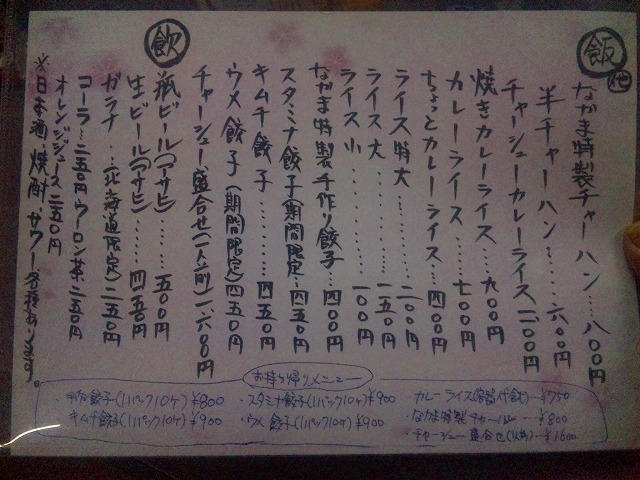 飯他
なかま特製チャーハン…八〇〇円
半チャーハン……六〇〇円
チャーシューカレーライス一二〇〇円
焼きカレーライス…九〇〇円
カレーライス………七〇〇円
ちょっとカレーライス…四〇〇円
ライス特大………二〇〇円
ライス大…………一五〇円
ライス小…………一〇〇円
なかま特製手作り餃子…四〇〇円
スタミナ餃子(期間限定…四五〇円
キムチ餃子………四五〇円
ウメ餃子(期間限定)四五〇円
チャーシュー盛合せ(一人前)一、六〇〇円
飲
瓶ビール(アサヒ)……五〇〇円
生ビール(アサヒ)……四五〇円
ガラナ…(北海道限定)二五〇円
コーラ…二五〇円ウーロン茶二五〇円
オレンジジュース二五〇円
※日本酒、焼酎、サワー各種あります。
お持ち帰りメニュー
・手作り餃子(1パック10ヶ)¥800
・キムチ餃子(1パック10ヶ)¥900
・スタミナ餃子(1パック10ヶ)¥900
・ウメ餃子(1パック10ヶ)¥900
・カレーライス(容器代含む)…¥750
・なかま特製チャーハン…¥800
・チャーシュー盛合せ(1人前)…¥1600